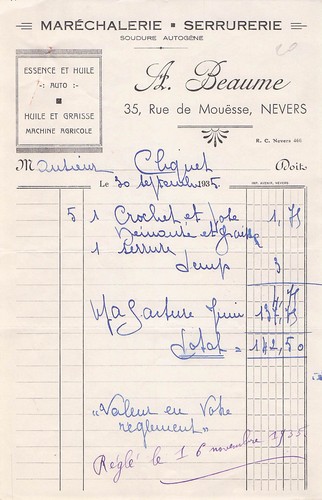 MARÉCHALERIE ▪ SERRURERIE
SOUDURE AUTOGÈNE
ESSENCE ET HUILE
· AUTO ·
HUILE ET GRAISSE
MACHINE AGRICOLE
A. Beaume
35, Rue de Mouësse, NEVERS
R. C. Nevers
Monsieur Cliquet Doit
Le 30 septembre 1935.
IMP. AVENIR, NEVERS
5 1 Crochet et pose 1,75
et graissage
1 serrure
Temps 3
4,75
facture Juin 137,75
Total = 142,50
"Valeur en Votre
règlement"
Réglé le 16 novembre 1935.